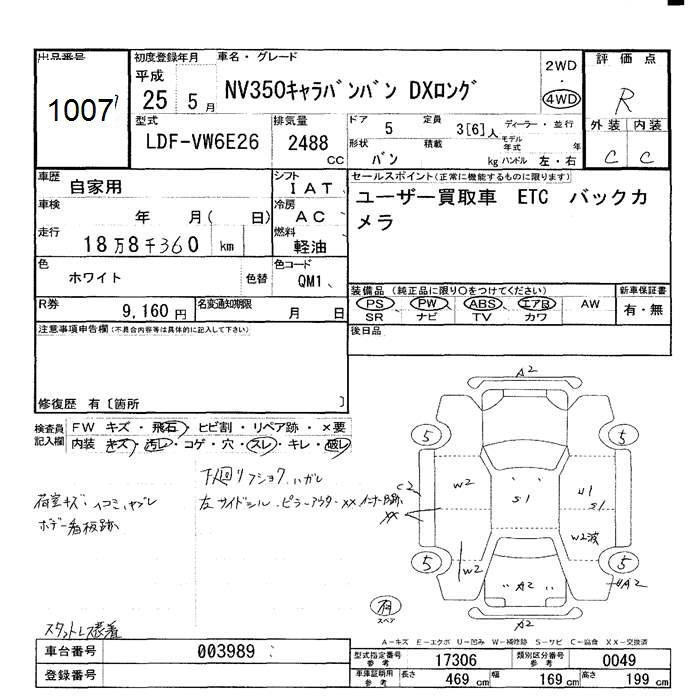 出品番号
1007
初度登録年月
平成
25 5 月
車名・グレード
NV350キャラバンバン DXロング
2WD
・
4WD
評価点
R
外装 内装
C C
型式
LDF-VW6E26
排気量
2488
cc
ドア 5
定員 3[6]人
ディーラー・並行
形状 バン
積載 kg
モデル年式 年
ハンドル 左・右
車歴 自家用
シフト IAT
車検 年 月( 日)
冷房 AC
走行 18万8千360 km
燃料 軽油
色 ホワイト 色替
色コード QM1
R券 9,160円
名変通知期限 月 日
セールスポイント(正常に機能するものに限ります)
ユーザー買取車 ETC バックカ
メラ
装備品(純正品に限り○をつけてください)
PS PW ABS エアB AW
SR ナビ TV カワ
新車保証書
有・無
後日品
注意事項申告欄(不具合内容等は具体的に記入して下さい)
修復歴 有〔箇所 〕
検査員記入欄
FW キズ・飛石・ヒビ割・リペア跡・×要
内装 キズ・汚レ・コゲ・穴・スレ・キレ・破レ
荷室キズ・ヘコミ、ヤブレ
ボデー看板跡
スタットレス装着
左サイドシル、ピラーアウター××
A2
5 5
C2
××
W2
S1
U1
S1
W2
W2波
5 5
A2
UA2
A2
有
スペア
A-キズ E-エクボ U-凹み W-補修跡 S-サビ C-腐食 XX-交換済
車台番号 003989
登録番号
型式指定番号 参考 17306
類別区分番号 参考 0049
車庫証明用 参考 長さ 469 cm 幅 169 cm 高さ 199 cm